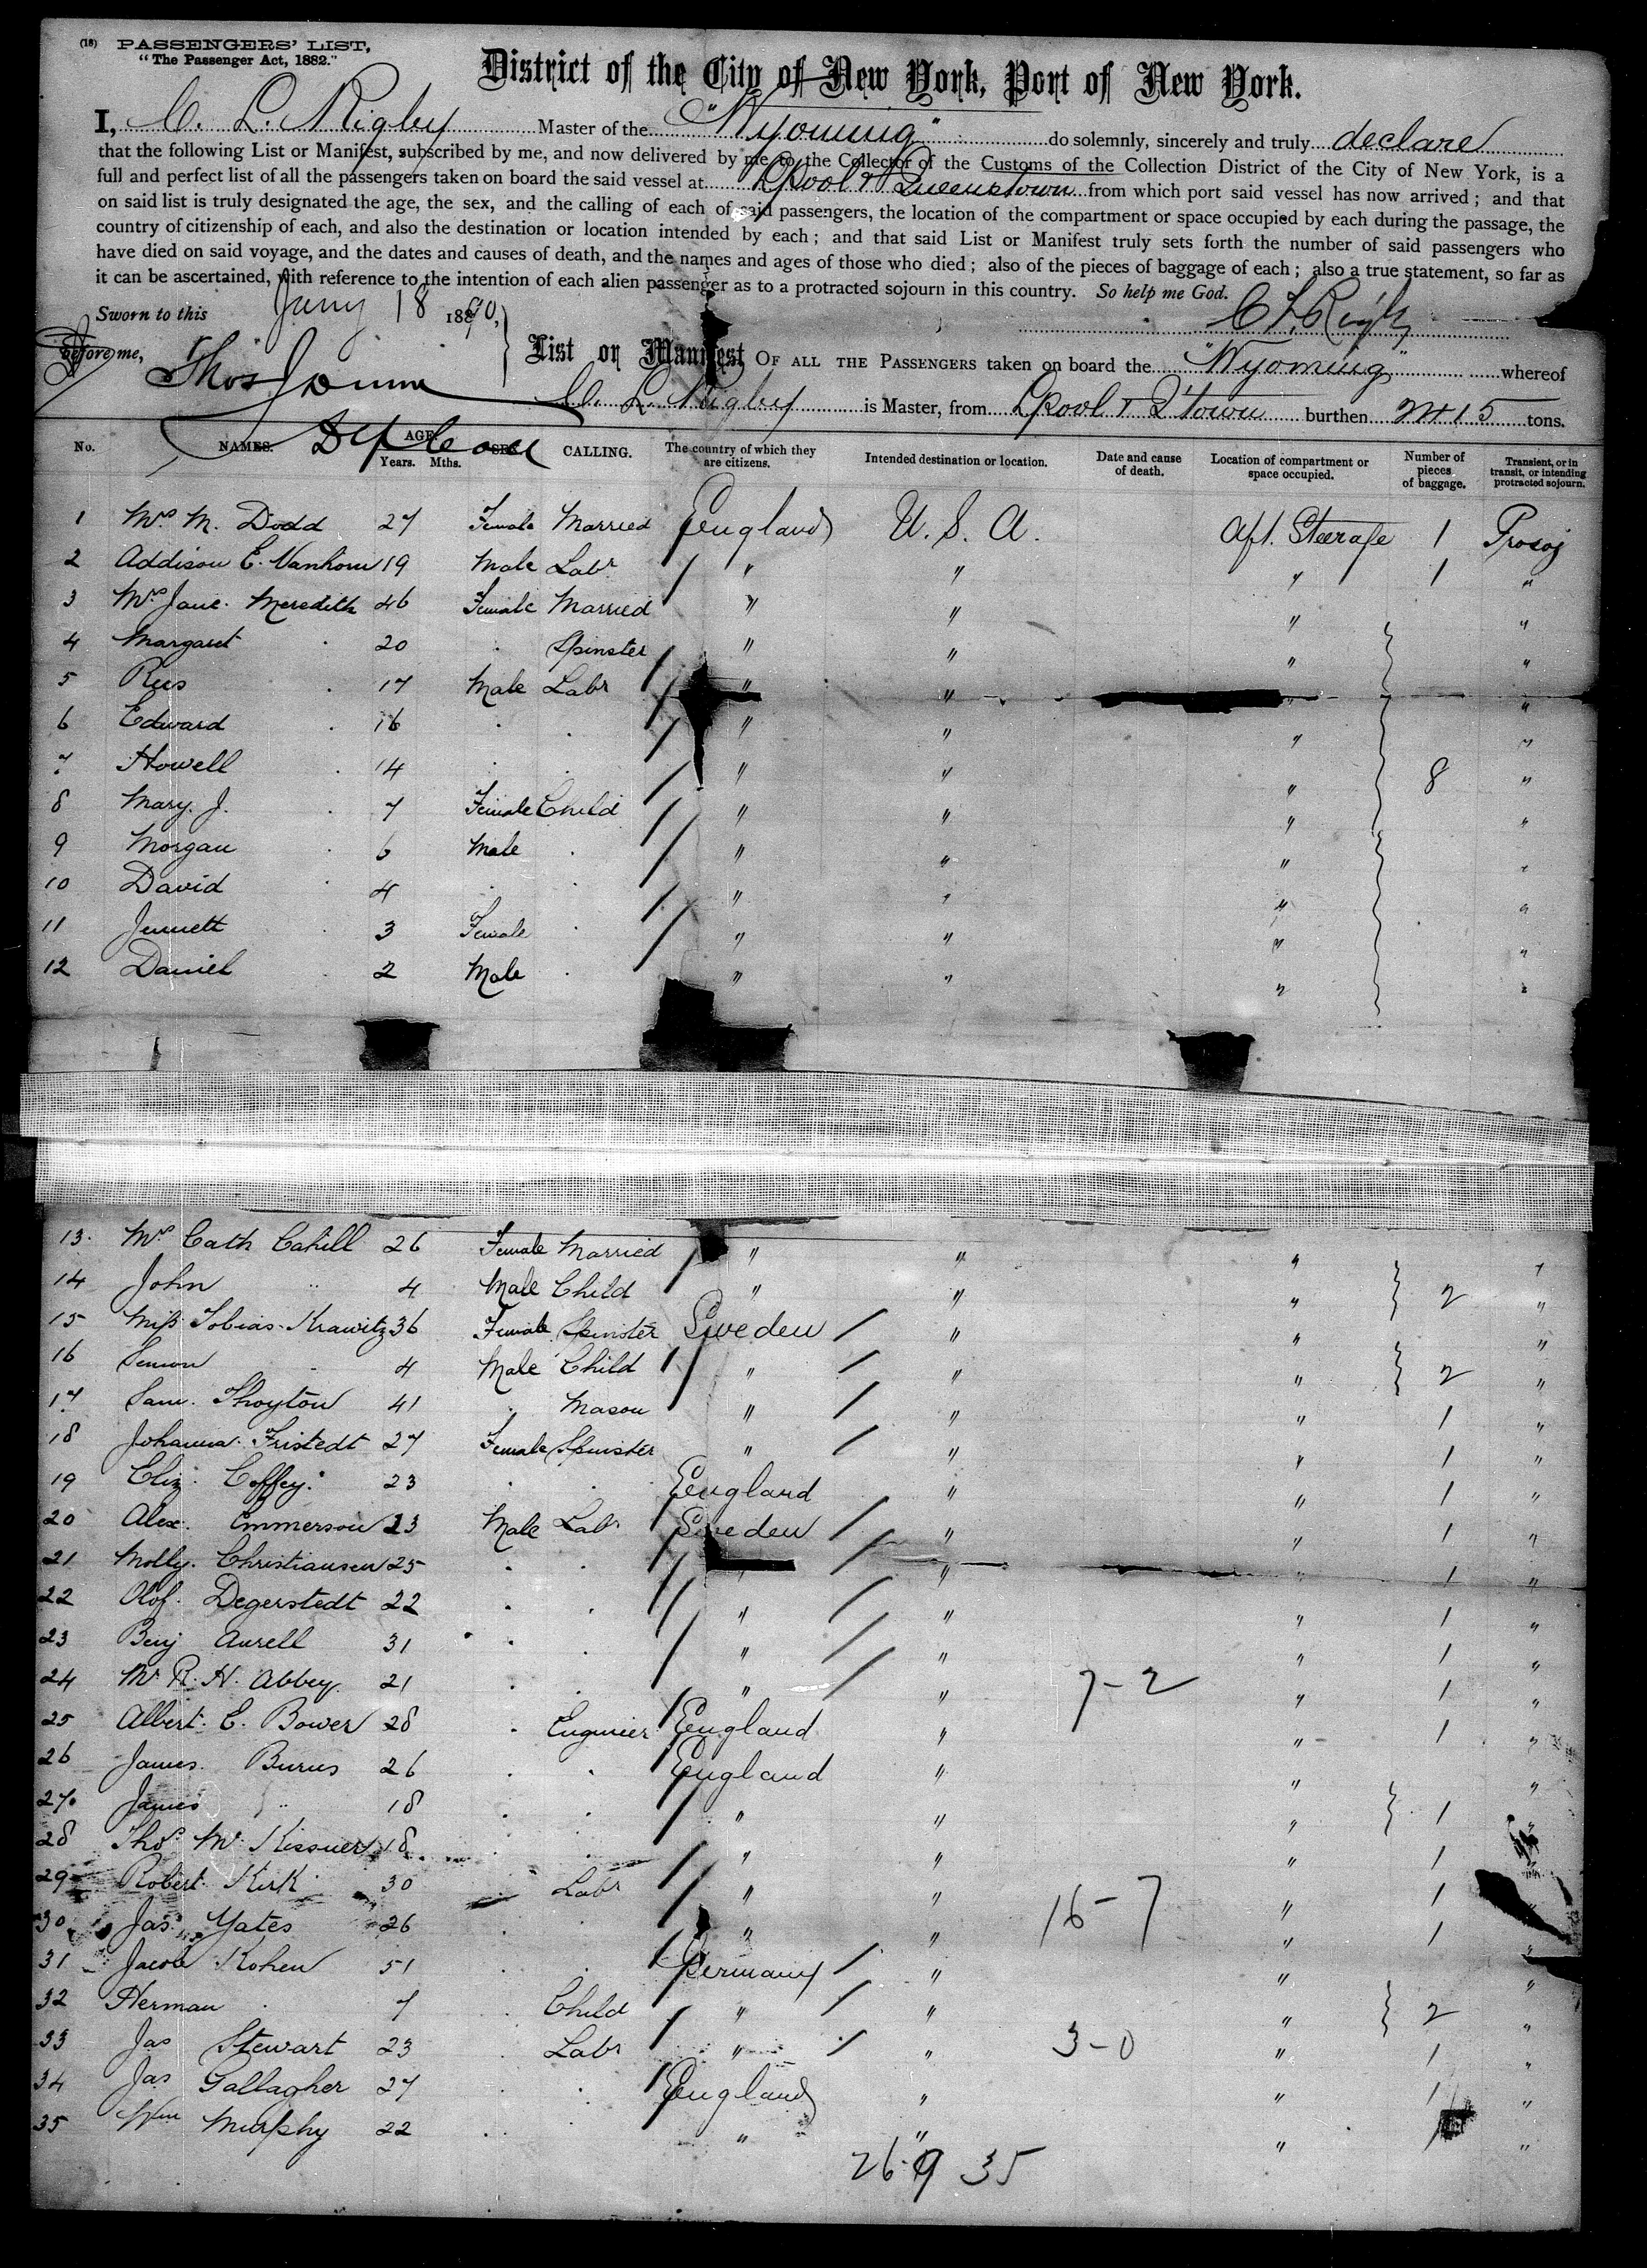 (18) PASSENGERS' LIST,
"The Passenger Act, 1882."
District of the City of New York, Port of New York.
I, C. L. Rigby Master of the "Wyoming" do solemnly, sincerely and truly declare
that the following List or Manifest, subscribed by me, and now delivered by me to the Collector of the Customs of the Collection District of the City of New York, is a
full and perfect list of all the passengers taken on board the said vessel at L'pool & Queenstown from which port said vessel has now arrived; and that
on said list is truly designated the age, the sex, and the calling of each of said passengers, the location of the compartment or space occupied by each during the passage, the
country of citizenship of each, and also the destination or location intended by each; and that said List or Manifest truly sets forth the number of said passengers who
have died on said voyage, and the dates and causes of death, and the names and ages of those who died; also of the pieces of baggage of each; also a true statement, so far as
it can be ascertained, with reference to the intention of each alien passenger as to a protracted sojourn in this country. So help me God.
Sworn to this Jany 18 1890, C L Rigby
before me, List or Manifest OF ALL THE PASSENGERS taken on board the "Wyoming" whereof
Thos C. L. Rigby is Master, from L'pool & Q'town burthen tons.
No. NAMES. AGE. Years. Mths. SEX. CALLING. The country of which they are citizens. Intended destination or location. Date and cause of death. Location of compartment or space occupied. Number of pieces of baggage. Transient, or in transit, or intending protracted sojourn.
1 Mrs M. Dodd 27 Female Married England U. S. A. Aft. Steerage 1
2 Addison E. Vanhorn 19 Male Labr " " " 1 "
3 Mrs Jane Meredith 46 Female Married " " " "
4 Margaret 20 Spinster " " " "
5 Rees 17 Male Labr " " " "
6 Edward 16 " " " "
7 Howell 14 " " " 8 "
8 Mary. J. 7 Female Child " " " "
9 Morgan 6 Male " " " "
10 David 4 " " " "
11 Jennett 3 Female " " " "
12 Daniel 2 Male " " " "
13 Mrs Cath Cahill 26 Female Married " " " "
14 John " 4 Male Child " " " 2 "
15 Miss Tobias Krawitz 36 Female Spinster Sweden " " "
16 Simon 4 Male Child " " " 2 "
17 Sam. Thoyton 41 Mason " " " 1 "
18 Johanna Fristedt 27 Female Spinster " " " 1 "
19 Eliz. Coffey 23 England " " 1 "
20 Alex. Emmerson 23 Male Labr Sweden " " 1 "
21 Molly. Christiansen 25 " " " 1 "
22 Olof. Degerstedt 22 " " " 1 "
23 Benj Aurell 31 " " " 1 "
24 Mr R. H. Abbey 21 " " 7-2 " 1 "
25 Albert. E. Bower 28 Engineer England " " 1 "
26 James. Burns 26 England " " "
27 James " 18 " " " 1 "
28 Thos Mc 18 " " " 1
29 Robert Kirk 30 Labr " " 16-7 " 1
30 Jas. Yates 26 " " " 1 "
31 Jacob Kohen 51 Germany " " "
32 Herman 7 Child " " " 2 "
33 Jas Stewart 23 Labr " " 3-0 " 1 "
34 Jas Gallagher 27 England " " 1 "
35 Wm Murphy 22 " " " 1 "
26 9 35